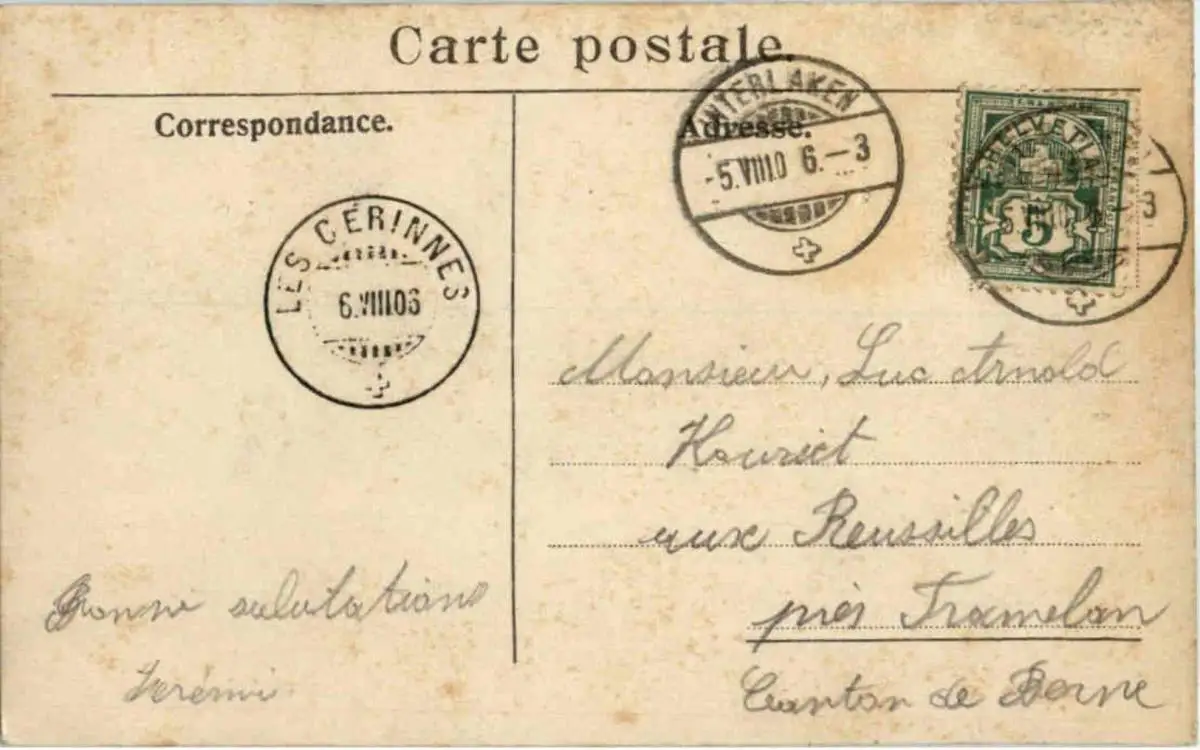 Carte postale.
Correspondance.
Adresse.
INTERLAKEN
-5.VIII.0 6.—3
HELVETIA
5
LES CÉRINNES
6.VIII.06
Monsieur, Luc Arnold
Houriet
aux Reussilles
près Tramelan
Canton de Berne
Bonne salutations